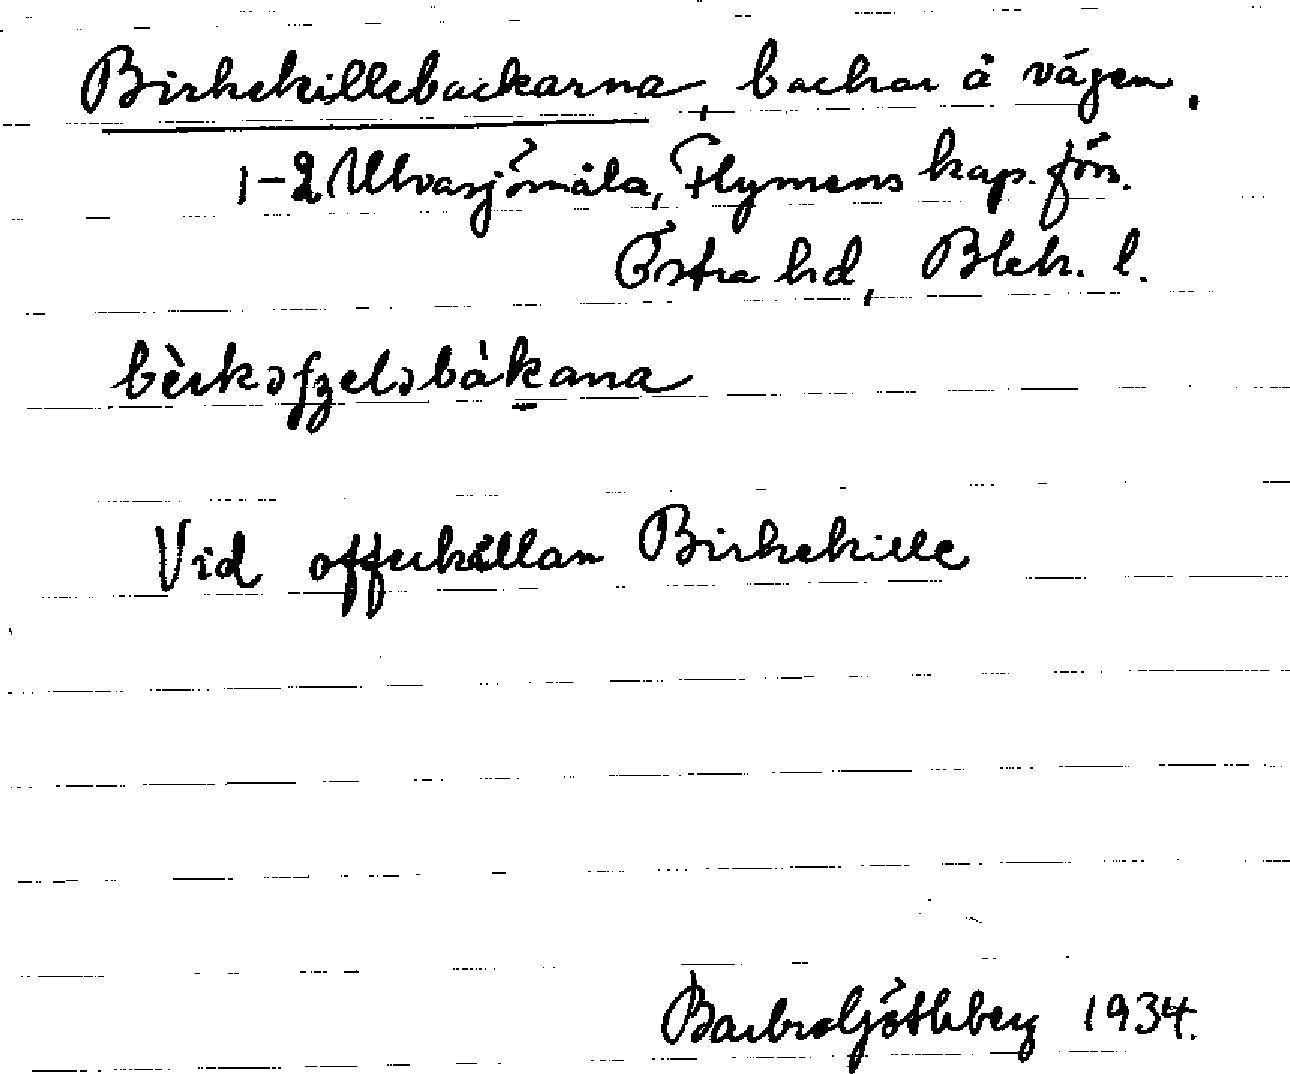 Birkekillebackarna, backar å vägen.
1-2 Ulvasjömåla, Flymens kap. förs.
Östra hd, Blek. l.
bèrkəfzeləbàkana
Vid offerkällan Birkekille
Barbro Götheberg 1934.